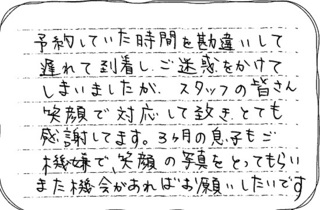 予約していた時間を勘違いして
遅れて到着し、ご迷惑をかけて
しまいましたが、スタッフの皆さん
笑顔で対応して致きとても
感謝してます。3ヶ月の息子もご
機嫌で、笑顔の写真をとってもらい
また機会があればお願いしたいです